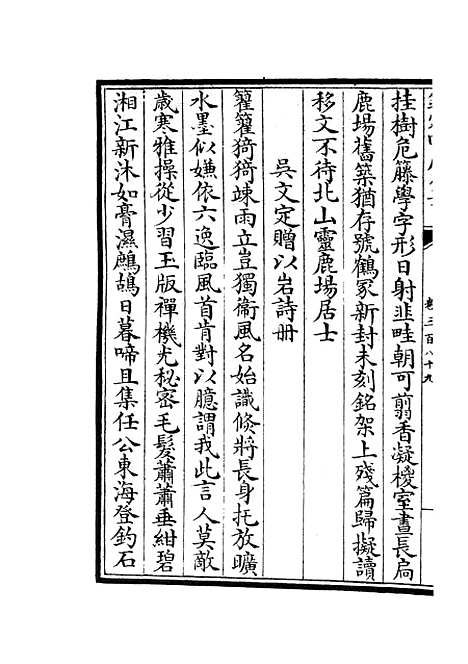 卷三百八十九
挂樹危籐學字形日射韭畦朝可剪香凝椶室晝長扃
鹿場舊築猶存號鶴冢新封未刻銘架上殘篇歸擬讀
移文不待北山靈鹿場居士
吳文定贈以岩詩册
籊籊猗猗竦雨立豈獨衞風名始識倐將長身托放曠
水墨似嫌依六逸臨風首肯對以臆謂我此言人莫敵
歲寒雅操從少習玉版禪機尤秘密毛髮蕭蕭垂紺碧
湘江新沐如膏濕鷓鴣日暮啼且集任公東海登釣石